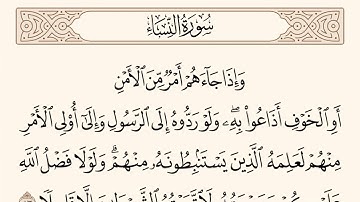 سُورَةُ النِّسَاءِ
وَإِذَا جَآءَهُمْ أَمْرٌ مِّنَ ٱلْأَمْنِ
أَوِ ٱلْخَوْفِ أَذَاعُوا۟ بِهِۦۖ وَلَوْ رَدُّوهُ إِلَى ٱلرَّسُولِ وَإِلَىٰٓ أُو۟لِى ٱلْأَمْرِ
مِنْهُمْ لَعَلِمَهُ ٱلَّذِينَ يَسْتَنۢبِطُونَهُۥ مِنْهُمْۗ وَلَوْلَا فَضْلُ ٱللَّهِ